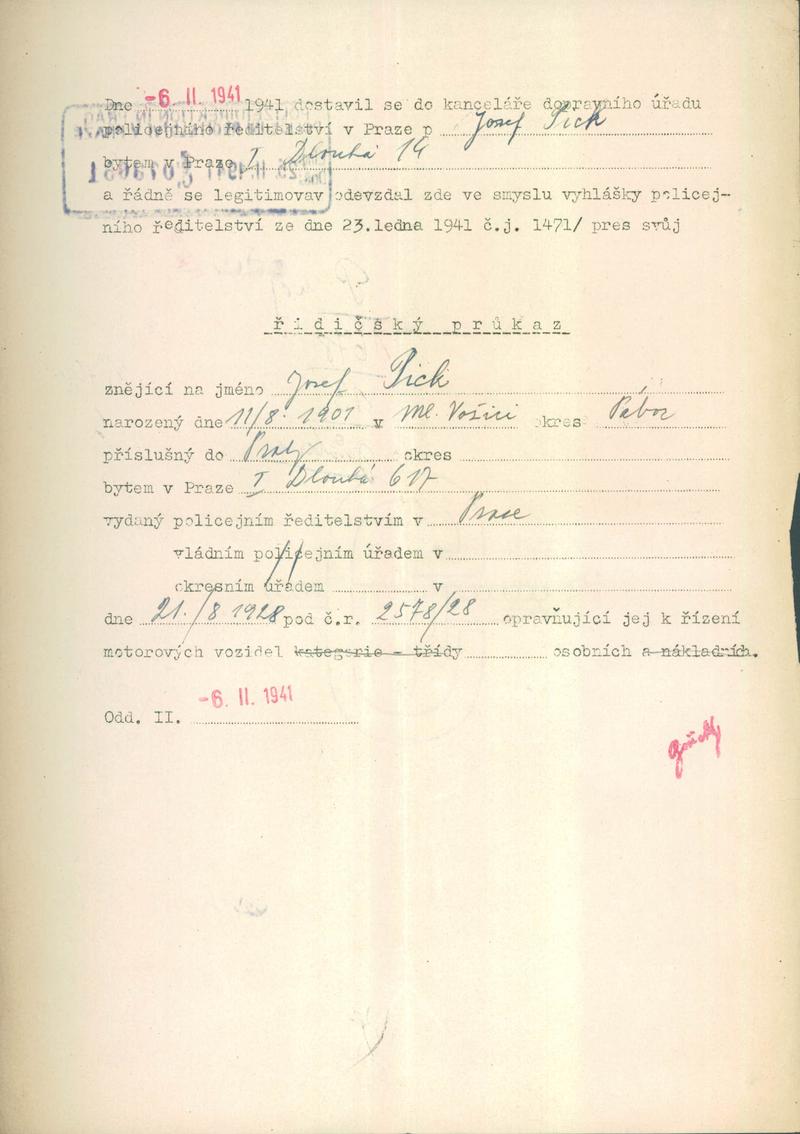 Dne -6. II. 1941 1941 dostavil se do kanceláře dopravního úřadu
policejního ředitelství v Praze p Josef Pick
bytem v Praze I Dlouhá 14
a řádně se legitimovav odevzdal zde ve smyslu vyhlášky policej-
ního ředitelství ze dne 23.ledna 1941 č.j. 1471/ pres svůj
řidičský průkaz
znějící na jméno Josef Pick
narozený dne 11/8. 1901 v Ml. Vožici okres Tábor
příslušný do Prahy okres
bytem v Praze I Dlouhá 617
vydaný policejním ředitelstvím v Praze
vládním policejním úřadem v
okresním úřadem v
dne 21./8 1928 pod č.r. 2578/28 opravňující jej k řízení
motorových vozidel kategorie - třídy osobních a nákladních.
-6. II. 1941
Odd. II.